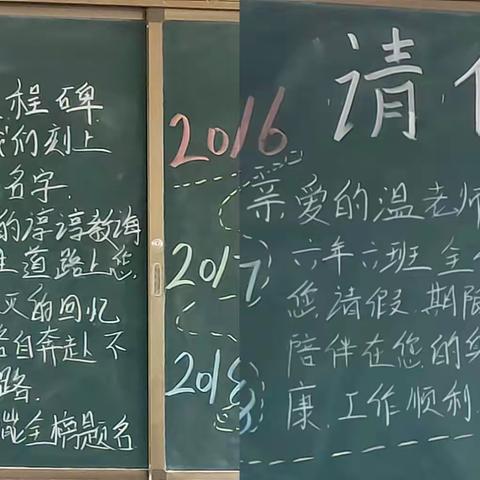 程碑
我们刻上
名字.
的淳淳教诲
道路上您
灭的回忆
各自奔赴不
路.
能金榜题名
2016
2017
2018
请
亲爱的温老师
六年六班全
您请假.期限
陪伴在您的
康.工作顺利